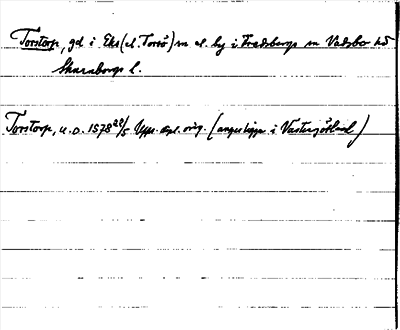 Torstorp, gd i Eks (el. Torsö) sn el. by i Fredsbergs sn Vadsbo hd
Skaraborgs l.
Torstorp, u.o. 1578 22/5 Upps. dpl. orig. (anges ligga i Västergötland)